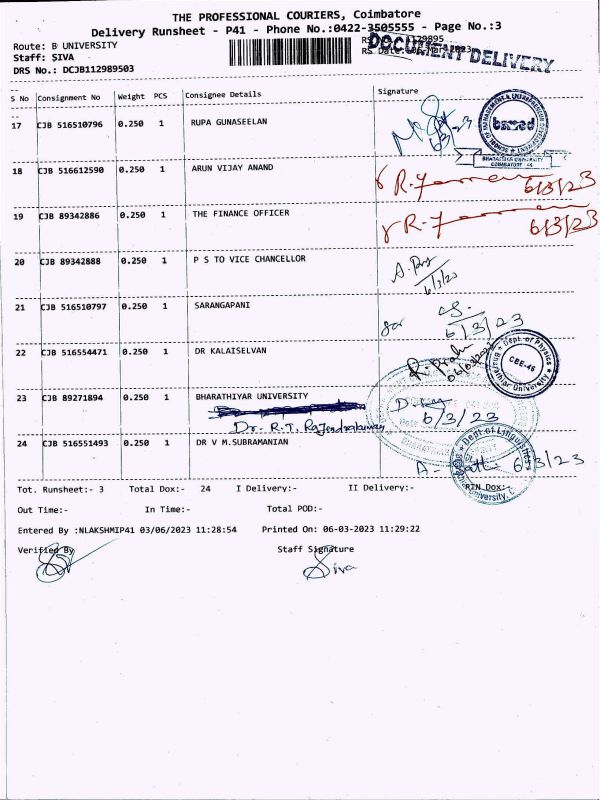 THE PROFESSIONAL COURIERS, Coimbatore
Delivery Runsheet - P41 - Phone No.:0422-3505555 - Page No.:3
Route: B UNIVERSITY
Staff: SIVA
DRS No.: DCJB112989503
DOCUMENT DELIVERY
S No Consignment No Weight PCS Consignee Details Signature
17 CJB 516510796 0.250 1 RUPA GUNASEELAN
6/3/23
bsmed
BHARATHIAR UNIVERSITY
COIMBATORE - 46
18 CJB 516612590 0.250 1 ARUN VIJAY ANAND
6/3/23
19 CJB 89342886 0.250 1 THE FINANCE OFFICER
6/3/23
20 CJB 89342888 0.250 1 P S TO VICE CHANCELLOR
6/3/23
21 CJB 516510797 0.250 1 SARANGAPANI
for 6/3/23
22 CJB 516554471 0.250 1 DR KALAISELVAN
06/03/2023
Dept. of Physics
CBE-46
Bharathiar University
23 CJB 89271894 0.250 1 BHARATHIYAR UNIVERSITY
Dr. R.T. Rajendrakumar
6/3/23
24 CJB 516551493 0.250 1 DR V M.SUBRAMANIAN
6/3/23
Dept. of Linguistics
Tot. Runsheet:- 3 Total Dox:- 24 I Delivery:- II Delivery:- RTN Dox:-
Out Time:- In Time:- Total POD:-
Entered By :NLAKSHMIP41 03/06/2023 11:28:54 Printed On: 06-03-2023 11:29:22
Verified By Staff Signature
Siva